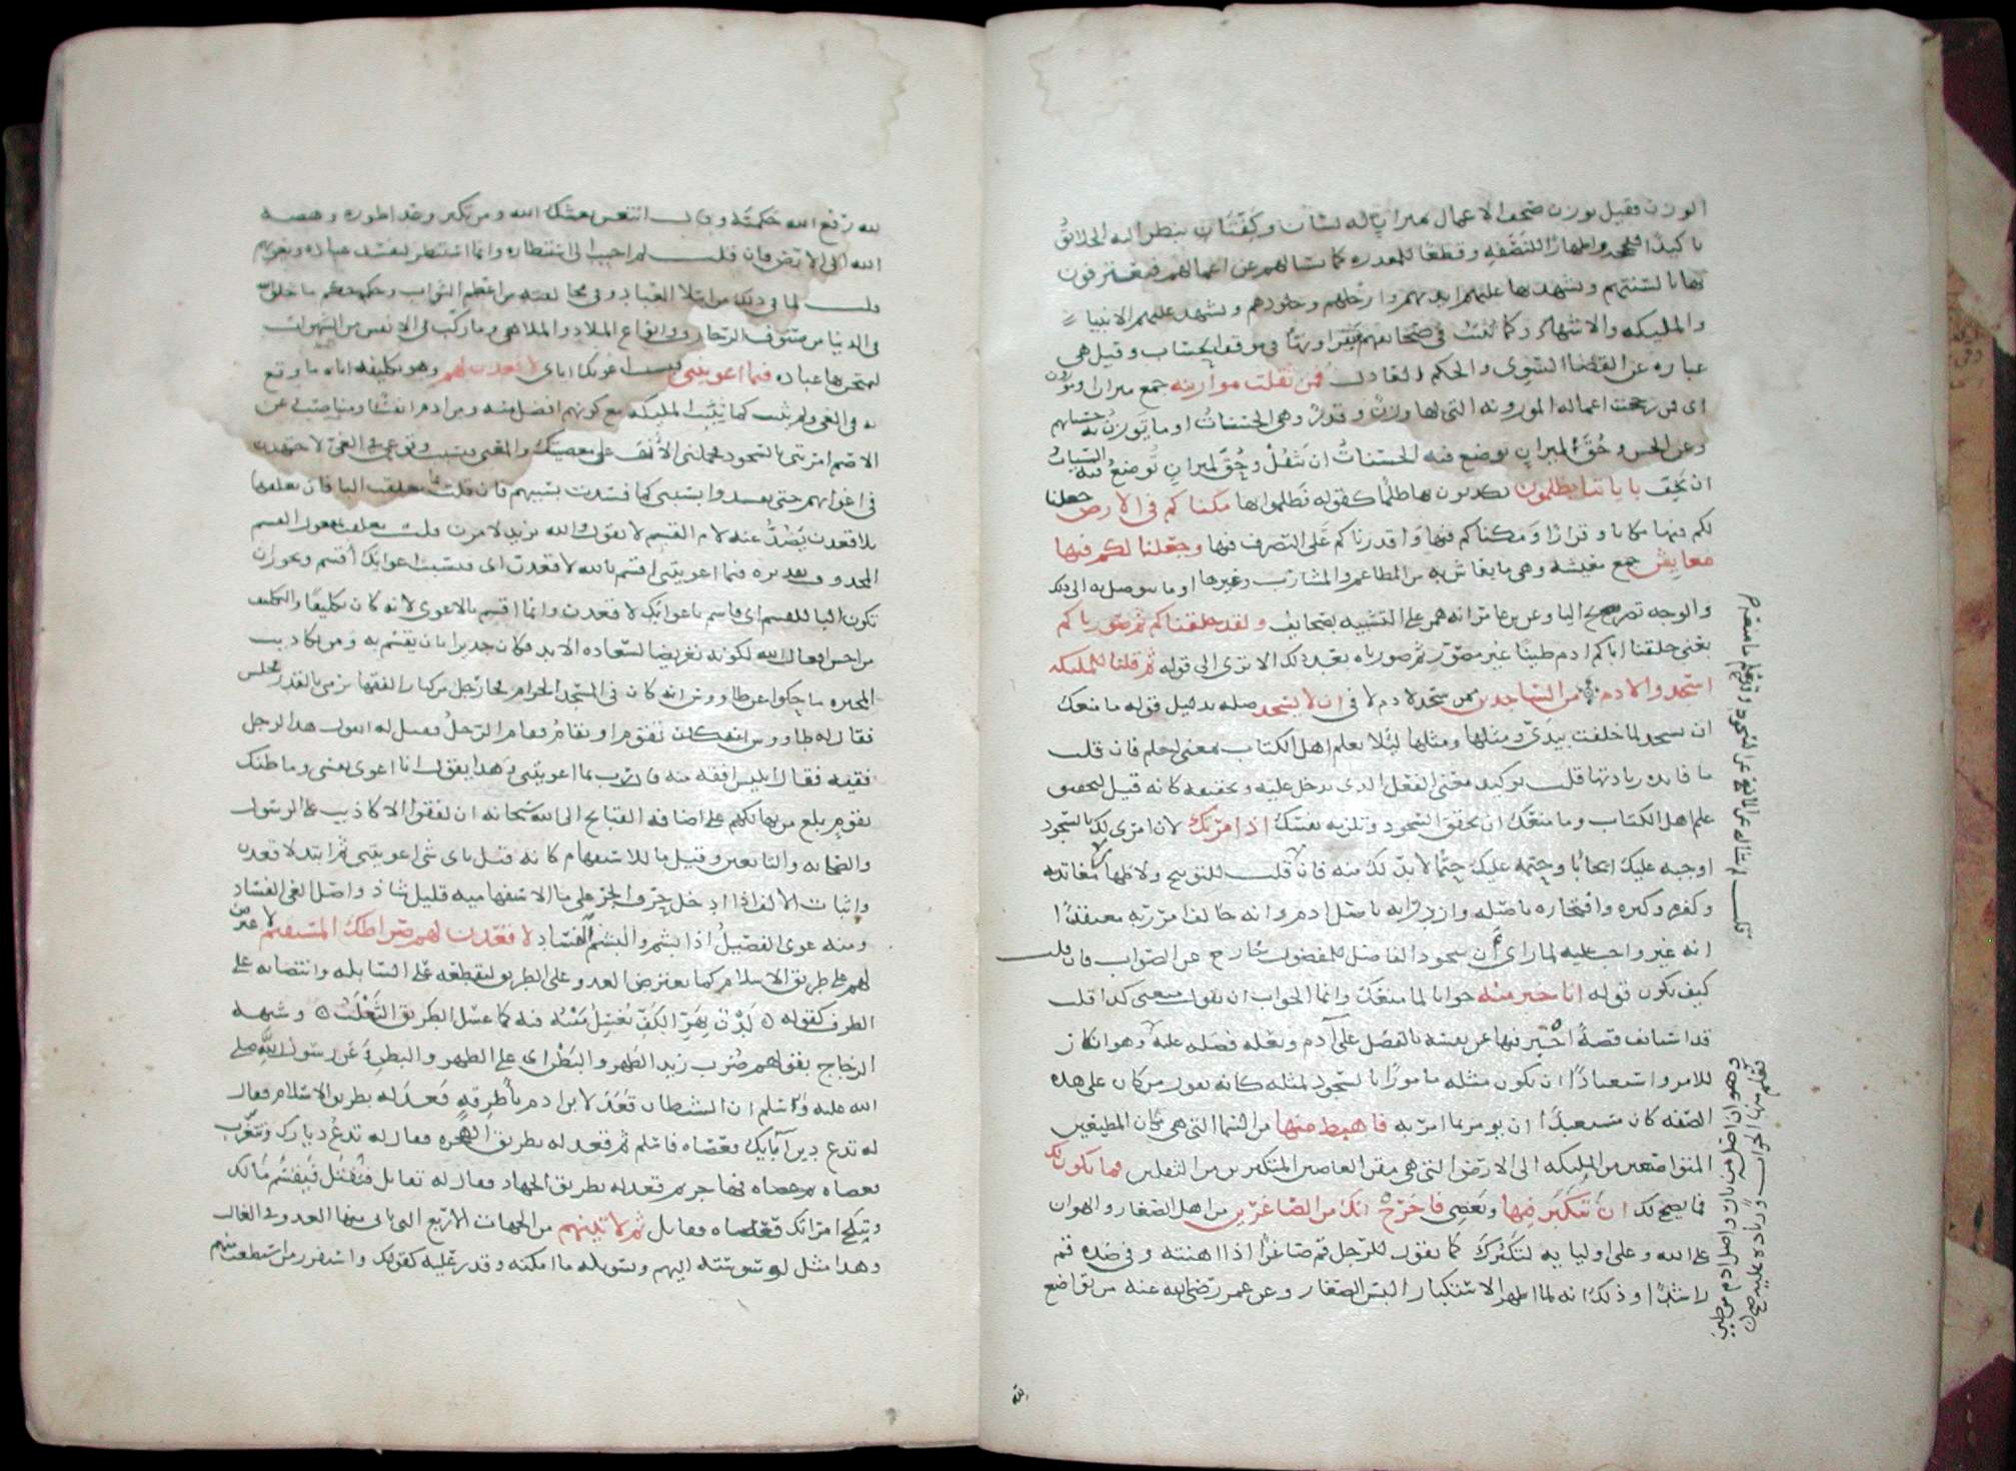 الوزن فقيل توزن صحف الاعمال بميزان له لسان وكفتان ينظر اليه الخلائق
تاكيدا للحجة واظهارا للنصفة وقطعا للمعذرة كما يسالهم عن اعمالهم فيعترفون
بها بالسنتهم وتشهد بها عليهم ايديهم وارجلهم وجلودهم وتشهد عليهم الانبيا
والمليكه والاشهاد وكما تثبت في صحائفهم فيقراونها في موقف الحساب وقيل هي
عباره عن القضا السوي والحكم العادل فمن ثقلت موازينه جمع ميزان او موزون
اي فمن رجحت اعماله الموزونه التي لها وزن وقدر وهي الحسنات او ما توزن به حسناتهم
وعن الحسن وحق لميزان توضع فيه الحسنات ان تثقل وحق لميزان توضع فيه السيات
ان تخف باياتنا يظلمون يكذبون بها ظلما كقوله فظلموا بها مكناكم في الارض جعلنا
لكم فيها مكانا وقرارا ومكناكم فيها واقدرناكم على التصرف فيها وجعلنا لكم فيها
معايش جمع معيشه وهي ما يعاش به من المطاعم والمشارب وغيرها او ما يتوصل به الى ذلك
والوجه تصريح اليا وعن ابن عامر انه همز على التشبيه بصحايف ولقد خلقناكم ثم صورناكم
يعني خلقنا اباكم ادم طينا غير مصور ثم صورناه بعد ذلك الا ترى الى قوله ثم قلنا للمليكه
اسجدوا لادم من الساجدين ممن سجد لادم لا في ان لا تسجد صله بدليل قوله ما منعك
ان تسجد لما خلقت بيدي ومثلها ليلا يعلم اهل الكتاب بمعنى ليعلم فان قلت
ما فايده زيادتها قلت توكيد معنى الفعل الذي تدخل عليه وتحقيقه كانه قيل ليتحقق
علم اهل الكتاب وما منعك ان تحقق السجود وتلزمه نفسك اذ امرتك لان امري لك بالسجود
اوجبه عليك ايجابا وحتمه عليك حتما لا بد لك منه فان قلت للتوبيخ ولاظهار معاندته
وكفره وكبره وافتخاره باصله وازدرايه باصل ادم وانه خالف امر ربه معتقدا
انه غير واجب عليه لما راى ان سجود الفاضل للمفضول خارج عن الصواب فان قلت
كيف يكون قوله انا خير منه جوابا لما منعك وانما الجواب ان يقول منعني كذا قلت
قد استانف قصة اخبر فيها عن نفسه بالفضل على آدم وبعلة فضله عليه وهو انكار
للامر واستبعادا ان يكون مثله مامورا بالسجود لمثله كانه يقول من كان على هذه
الصفه كان مستبعدا ان يومر بما امر به فاهبط منها من السما التي هي مكان المطيعين
المتواضعين من المليكه الى الارض التي هي مقر العاصين المتكبرين من الثقلين فما يكون لك
فما يصح لك ان تتكبر فيها وتعصي فاخرج انك من الصاغرين من اهل الصغار والهوان
على الله وعلى اوليايه لتكبرك كما تقول للرجل قم صاغرا اذا اهنته وفي ضده قم
راشدا وذلك انه لما اظهر الاستكبار البس الصغار وعن عمر رضي الله عنه من تواضع
لم يسال عن المانع عن السجود وقد علم ما منعه قلت
وهو ان اصله من نار واصل ادم من طين
فعلم منها الجواب وزياده عليه وهي
لله
لله رفع الله حكمته وقال انتعش نعشك الله ومن تكبر وعدا طوره وهصه
الله الى الارض فان قلت لم اجيب الى استنظاره وانما استنظر ليفسد عباده ويغويهم
قلت لما في ذلك من ابتلا العباد وفي مخالفته من اعظم الثواب وحكمه حكم ما خلق الله
في الدنيا من صنوف الزخارف وانواع الملاذ والملاهي وما ركب في الانفس من الشهوات
ليمتحن بها عباده فبما اغويتني فبسبب اغوايك اياي لاقعدن لهم وهو تكليفه اياه ما وقع
به في الغي ولم يثبت كما ثبتت المليكه مع كونهم افضل منه ومن ادم انفسا ومناصب وعن
الاصم امرتني بالسجود فحملني الانف على معصيتك والمعنى فبسبب وقوعي في الغي لاجتهدن
في اغوايهم حتى يفسدوا بسببي كما فسدت بسببهم فان قلت بم تعلقت البا فان تعلقها
بلاقعدن يصد عنه لام القسم لا تقول والله بزيد لامرن قلت تعلقت بفعل القسم
المحذوف تقديره فبما اغويتني اقسم بالله لاقعدن اي فبسبب اغوايك اقسم ويجوز ان
تكون البا للقسم اي فاسم باغوايك لاقعدن وانما اقسم بالاغوى لانه كان تكليفا والتكليف
من احسن افعال الله لكونه تعريضا لسعاده الابد فكان جديرا بان يقسم به ومن تكاذيب
المجبره ما حكوا عن طاووس انه كان في المسجد الحرام فجا رجل من كبار الفقها يرمى بالقدر فجلس
فقال له طاووس تقوم او تقام فقام الرجل فقيل له اتقول هذا لرجل
فقيه فقال ابليس افقه منه قال رب بما اغويتني وهذا يقول انا اغوي نفسي وما ظنك
بقوم بلغ من تهالكهم على اضافه القبايح الى الله سبحانه ان لفقوا الاكاذيب على الرسول
والصحابه والتابعين وقيل ما للاستفهام كانه قيل باي شي اغويتني ثم ابتدا لاقعدن
واثبات الالف اذا ادخل حرف الجر على ما الاستفهاميه قليل شاذ واصل الغي الفساد
ومنه غوى الفصيل اذا بشم والبشم الفساد لاقعدن لهم صراطك المستقيم لاعترضن
لهم على طريق الاسلام كما يعترض العدو على الطريق ليقطعه على السابله وانتصابه على
الظرف كقوله لدن بهز الكف يعسل متنه فيه كما عسل الطريق الثعلب وشبهه
الزجاج بقولهم ضرب زيد الظهر والبطن اي على الظهر والبطن وعن رسول الله صلى
الله عليه وسلم ان الشيطان قعد لابن ادم باطرقه فقعد له بطريق الاسلام فقال
له تدع دين آبايك فعصاه فاسلم ثم قعد له بطريق الهجره فقال له تدع ديارك وتتغرب
فعصاه فهاجر ثم قعد له بطريق الجهاد فقال له تقاتل فتقتل فيقسم مالك
وتنكح امراتك فعصاه فقاتل ثم لاتينهم من الجهات الاربع التي ياتي منها العدو في الغالب
وهذا مثل لوسوسته اليهم وتسويله ما امكنه وقدر عليه كقوله واستفزز من استطعت منهم